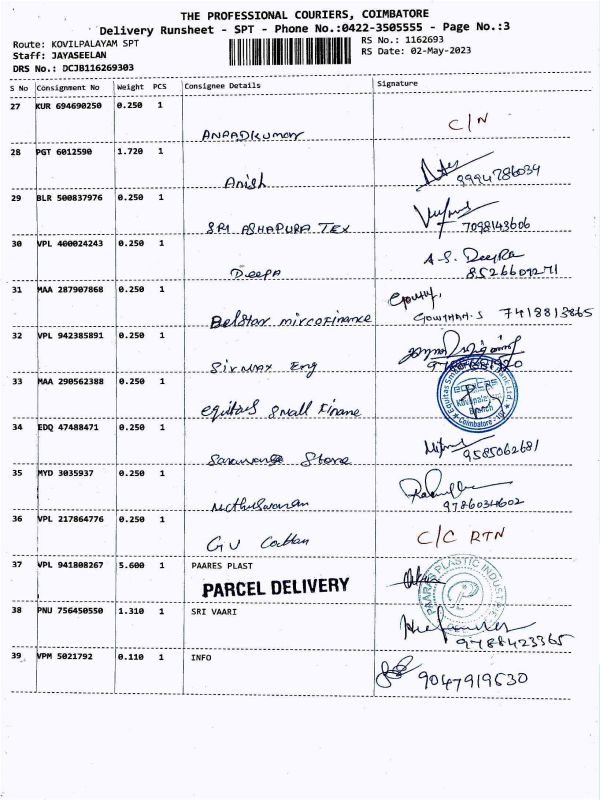 THE PROFESSIONAL COURIERS, COIMBATORE
Delivery Runsheet - SPT - Phone No.:0422-3505555 - Page No.:3
Route: KOVILPALAYAM SPT
RS No.: 1162693
Staff: JAYASEELAN
RS Date: 02-May-2023
DRS No.: DCJB116269303
S No Consignment No Weight PCS Consignee Details Signature
27 KUR 694690250 0.250 1
C/N
28 PGT 6012590 1.720 1
Anish
9994786034
29 BLR 500837976 0.250 1
SRI ASHAPURA TEX
7098143606
30 VPL 400024243 0.250 1
Deepa
A-S. Deepa
8526609271
31 MAA 287907868 0.250 1
Belstar mircofinance
Gowtham.S 7418813865
32 VPL 942385891 0.250 1
Eng
33 MAA 290562388 0.250 1
equitas small Finane
Branch
Coimbatore
34 EDQ 47488471 0.250 1
Store
9585062681
35 MYD 3035937 0.250 1
9786034602
36 VPL 217864776 0.250 1
GV Cotton
C/C RTN
37 VPL 941808267 5.600 1 PAARES PLAST
PARCEL DELIVERY
PAARES PLASTIC INDUSTRIES
38 PNU 756450550 1.310 1 SRI VAARI
9788423365
39 VPM 5021792 0.110 1 INFO
9047919630